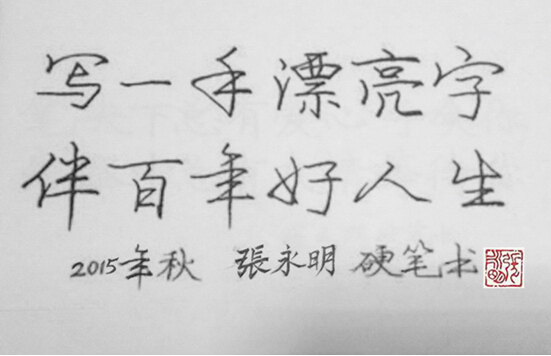 写一手漂亮字
伴百年好人生
2015年秋 張永明 硬笔书